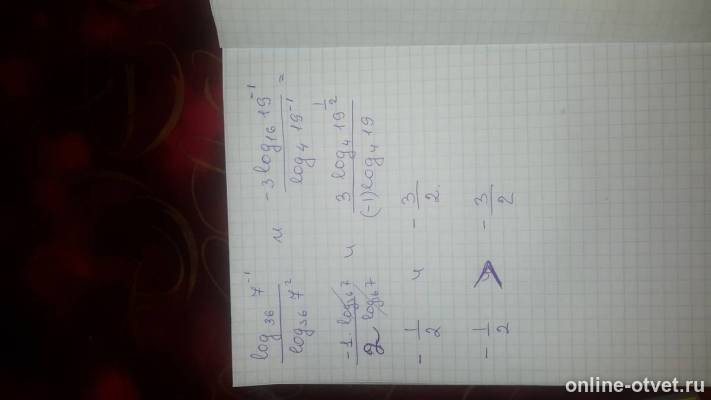 log₃₆ 7⁻¹ / log₃₆ 7² и -3 log₁₆ 19⁻¹ / log₄ 19⁻¹ =
-1 · log₃₆ 7 / 2 log₃₆ 7 и 3 log₄ 19^(1/2) / (-1) log₄ 19
- 1/2 и - 3/2.
- 1/2 > - 3/2
online-otvet.ru